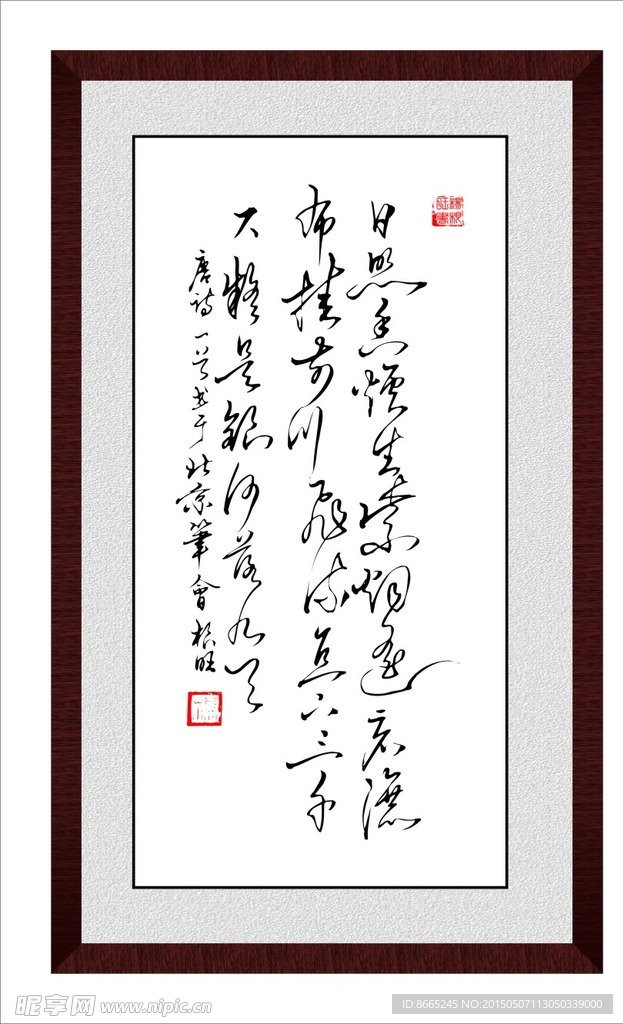 日照香炉生紫烟遥看瀑
布挂前川飛流直下三千
尺疑是銀河落九天
唐詩一首书于北京筆會
昵享网 www.nipic.cn
ID:8665245 NO:20150507113050339000